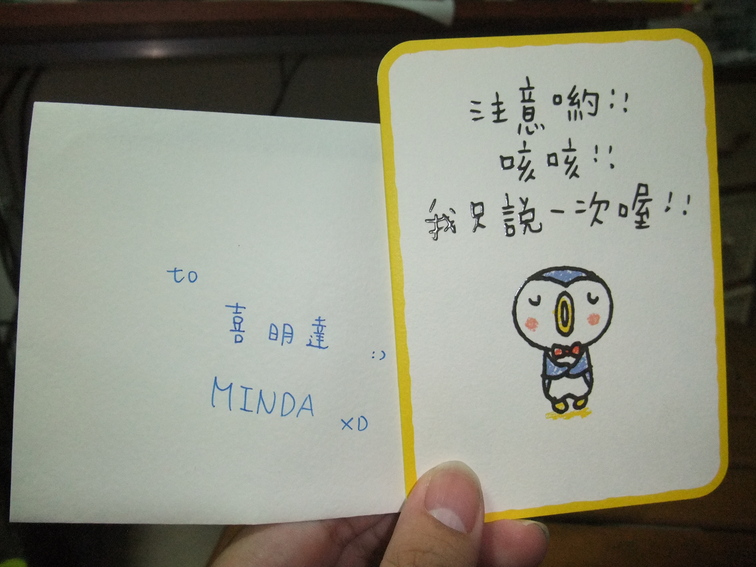 to
喜明達 :)
MINDA XD
注意喲!!
咳咳!!
我只說一次喔!!